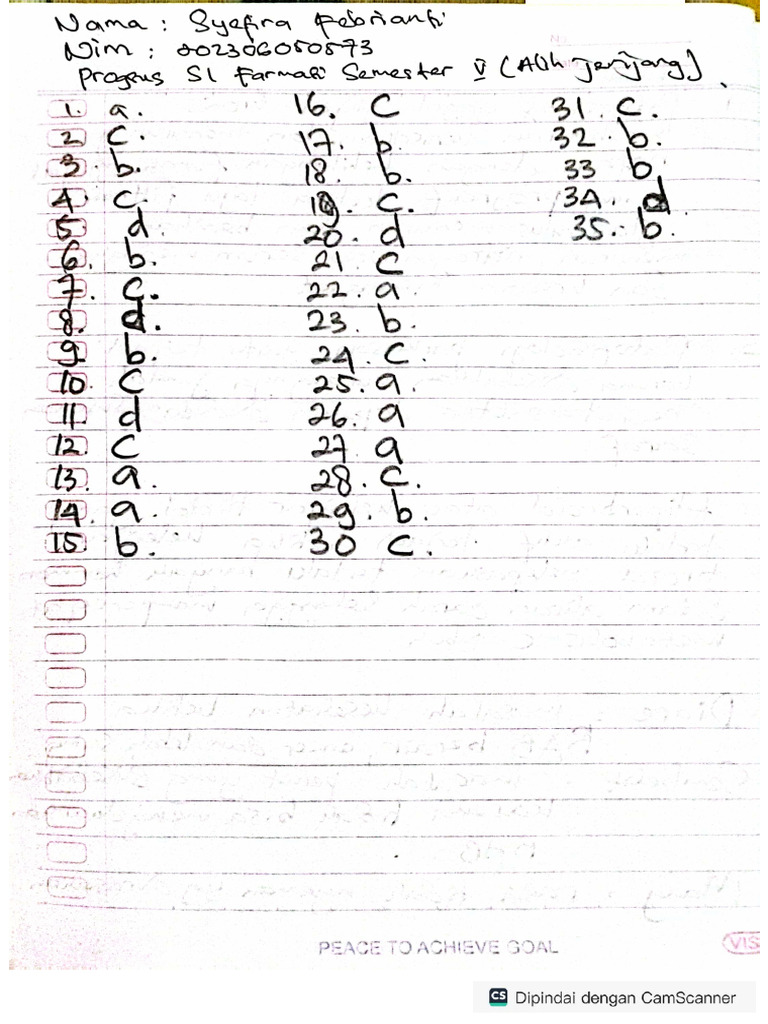 Nama : Syafira Febrianti
Nim : 202306050573
Progsus S1 Farmasi Semester V (Alih Jenjang)
1. a.
2 c.
3. b.
4 c.
5 d.
6. b.
7. c.
8. d.
9 b.
10. c
11 d
12. c
13. a.
14. a.
15 b.
16. c
17. b
18. b.
19. c.
20. d
21 c
22. a
23. b.
24 c.
25. a.
26. a
27 a
28. c.
29. b.
30 c.
31. c.
32. b.
33 b
34. d
35. b.
PEACE TO ACHIEVE GOAL
VIS
CS Dipindai dengan CamScanner